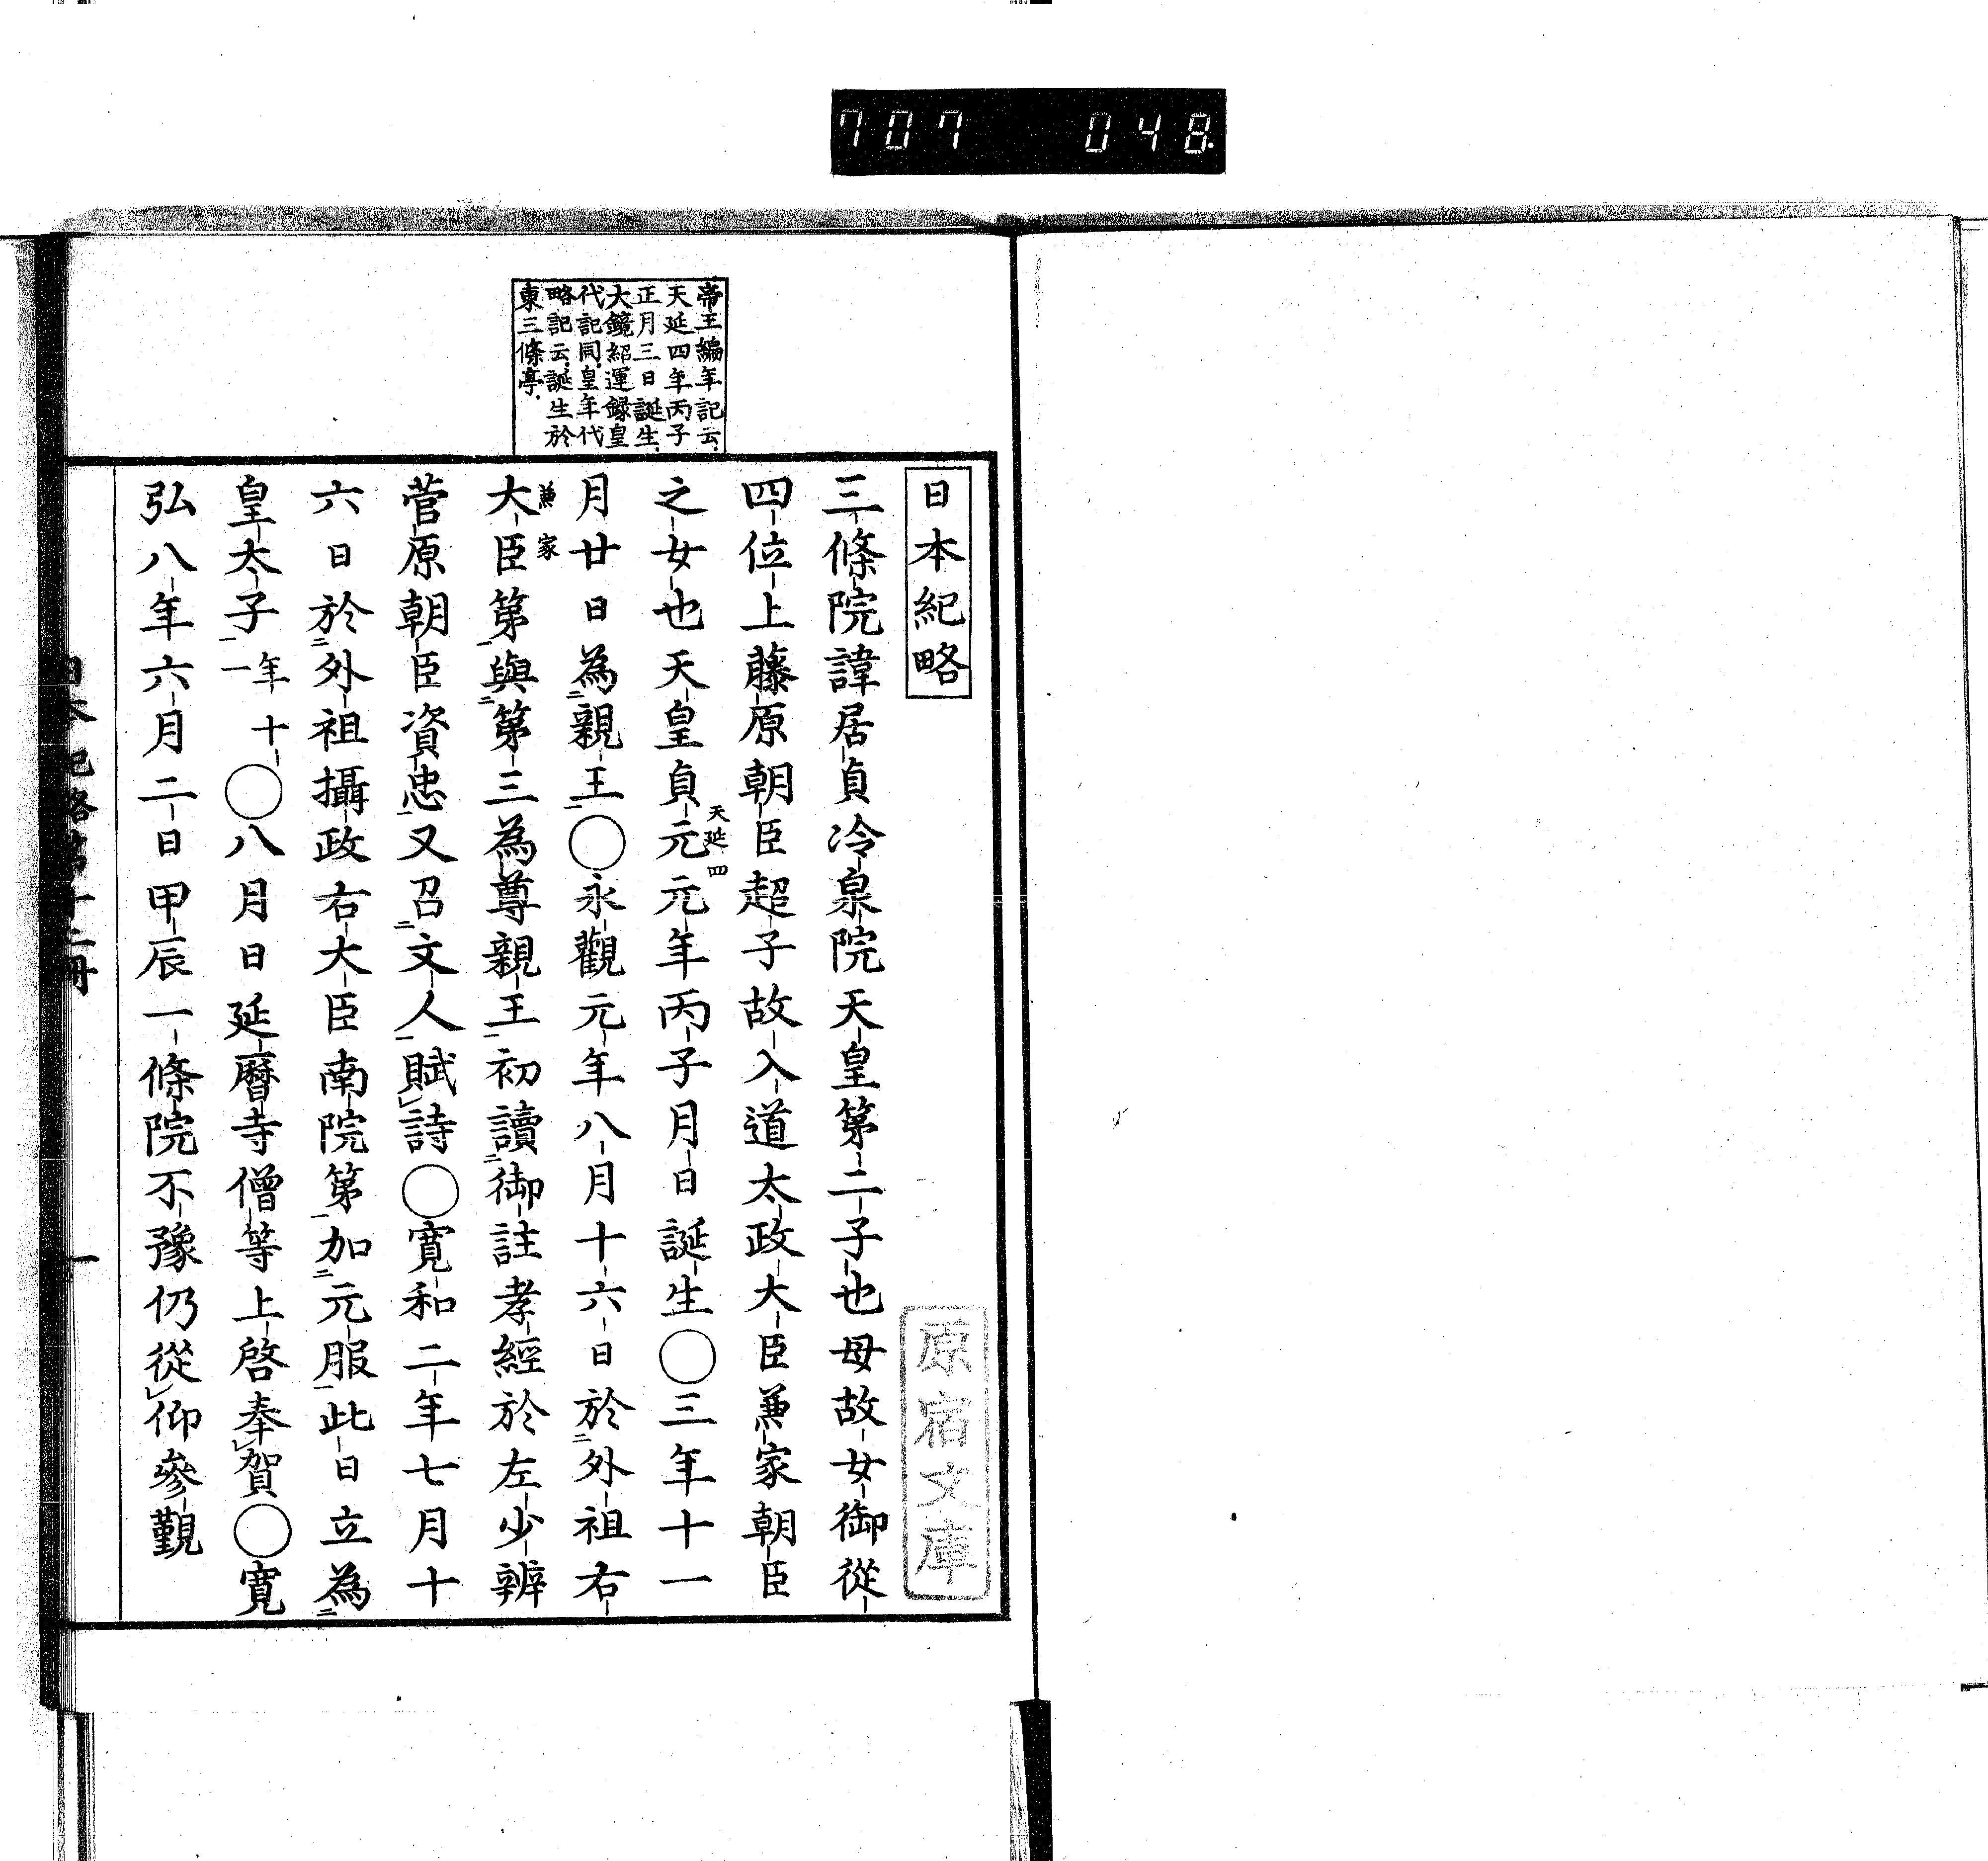 707 048
帝王編年記云
天延四年丙子
正月三日誕生
大鏡紹運録皇
代記同皇年代
略記云誕生於
東三條亭
日本紀略
原宿文庫
三條院諱居貞冷泉院天皇第二子也母故女御從
四位上藤原朝臣超子故入道太政大臣兼家朝臣
之女也天皇貞元元年丙子月日誕生○三年十一
天延四
月廿日為親王○永觀元年八月十六日於外祖右
大臣第與第三為尊親王初讀御註孝經於左少辨
兼家
菅原朝臣資忠又召文人賦詩○寛和二年七月十
六日於外祖攝政右大臣南院第加元服此日立為
皇太子年十一○八月日延暦寺僧等上啓奉賀○寛
弘八年六月二日甲辰一條院不豫仍從仰參覲
一